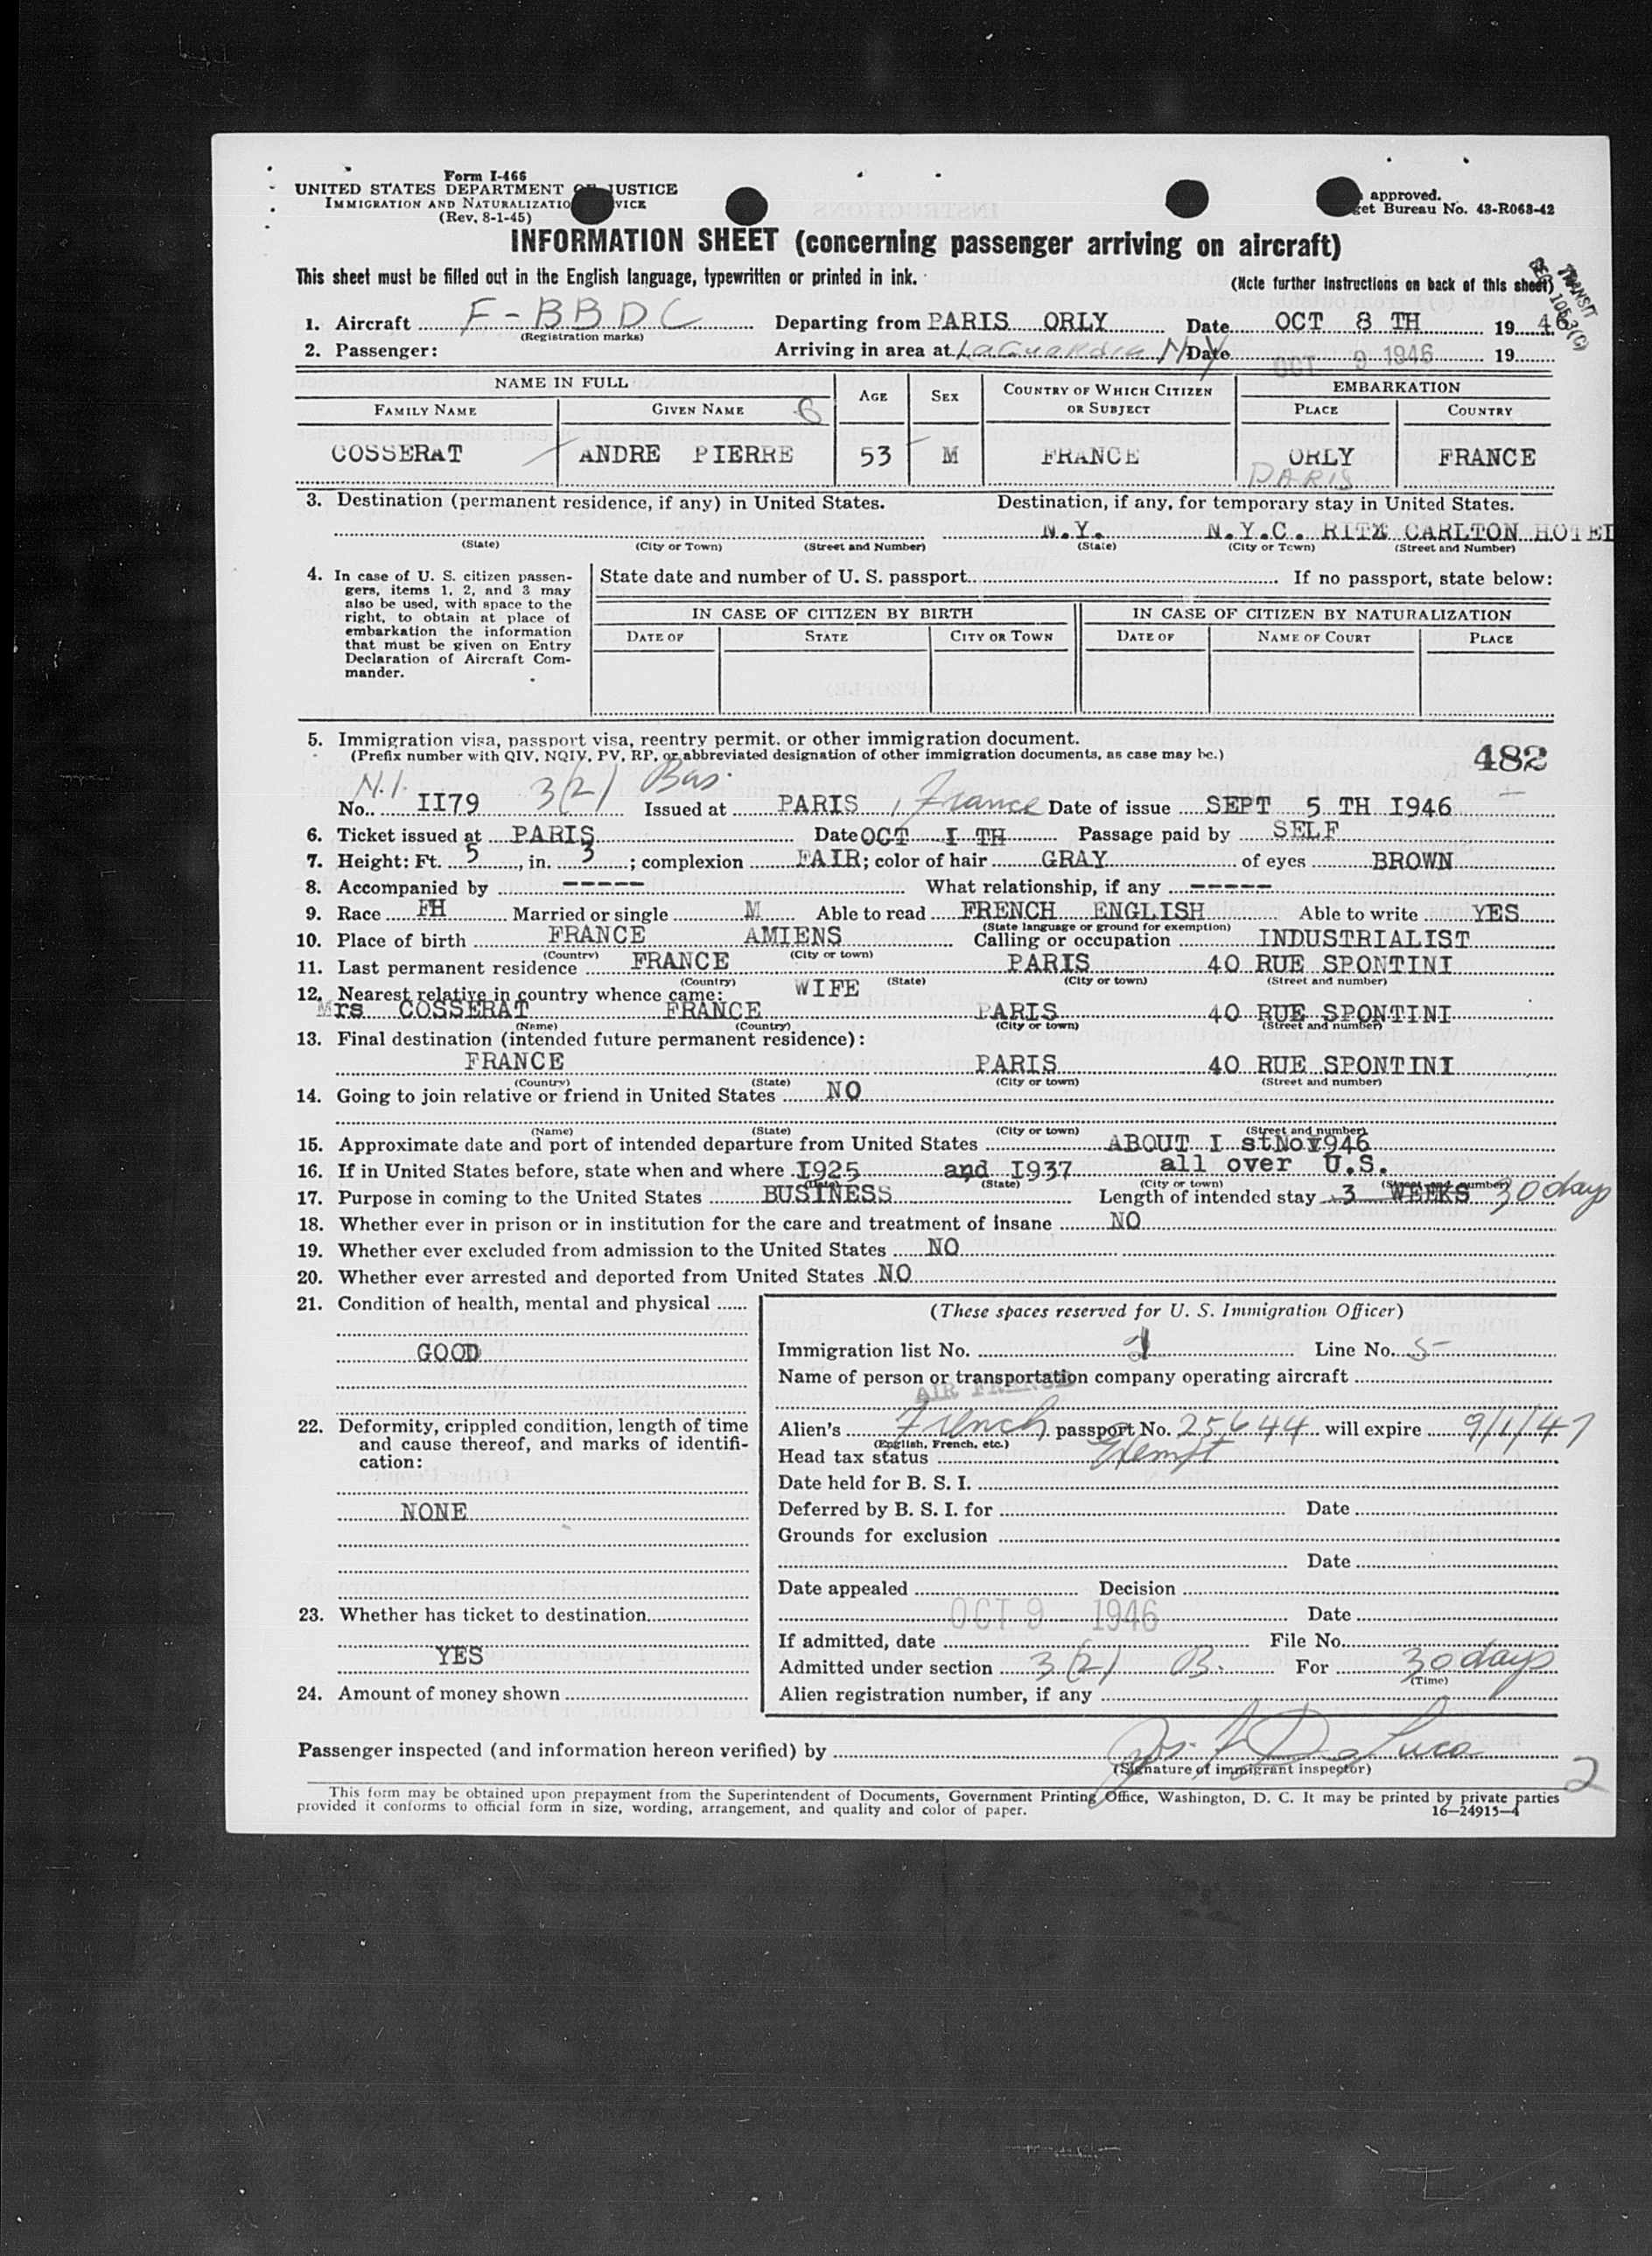 Form I-466
UNITED STATES DEPARTMENT OF JUSTICE
IMMIGRATION AND NATURALIZATION SERVICE
(Rev. 8-1-45)
approved.
Bureau No. 43-R063-42
INFORMATION SHEET (concerning passenger arriving on aircraft)
This sheet must be filled out in the English language, typewritten or printed in ink.
(Note further instructions on back of this sheet)
TRANSIT
1. Aircraft F-BBDC Departing from PARIS ORLY Date OCT 8 TH 19 46
(Registration marks)
2. Passenger: Arriving in area at LaGuardia N Y Date OCT 9 1946 19
NAME IN FULL AGE SEX COUNTRY OF WHICH CITIZEN OR SUBJECT EMBARKATION
FAMILY NAME GIVEN NAME PLACE COUNTRY
6
COSSERAT ANDRE PIERRE 53 M FRANCE ORLY FRANCE
PARIS
3. Destination (permanent residence, if any) in United States. Destination, if any, for temporary stay in United States.
N.Y. N.Y.C. RITZ CARLTON HOTEL
(State) (City or Town) (Street and Number) (State) (City or Town) (Street and Number)
4. In case of U. S. citizen passen-
gers, items 1, 2, and 3 may
also be used, with space to the
right, to obtain at place of
embarkation the information
that must be given on Entry
Declaration of Aircraft Com-
mander.
State date and number of U. S. passport If no passport, state below:
IN CASE OF CITIZEN BY BIRTH IN CASE OF CITIZEN BY NATURALIZATION
DATE OF STATE CITY OR TOWN DATE OF NAME OF COURT PLACE
5. Immigration visa, passport visa, reentry permit, or other immigration document.
(Prefix number with QIV, NQIV, PV, RP, or abbreviated designation of other immigration documents, as case may be.)
482
N.I. 3(2) Bus.
No. II79 Issued at PARIS, France Date of issue SEPT 5 TH I946
6. Ticket issued at PARIS Date OCT I TH Passage paid by SELF
7. Height: Ft. 5, in. 3; complexion FAIR; color of hair GRAY of eyes BROWN
8. Accompanied by ----- What relationship, if any -----
9. Race FH Married or single M Able to read FRENCH ENGLISH Able to write YES
(State language or ground for exemption)
10. Place of birth FRANCE AMIENS Calling or occupation INDUSTRIALIST
(Country) (City or town)
11. Last permanent residence FRANCE PARIS 40 RUE SPONTINI
(Country) (State) (City or town) (Street and number)
12. Nearest relative in country whence came: WIFE
Mrs COSSERAT FRANCE PARIS 40 RUE SPONTINI
(Name) (Country) (City or town) (Street and number)
13. Final destination (intended future permanent residence):
FRANCE PARIS 40 RUE SPONTINI
(Country) (State) (City or town) (Street and number)
14. Going to join relative or friend in United States NO
(Name) (State) (City or town) (Street and number)
15. Approximate date and port of intended departure from United States ABOUT I st Nov I946
16. If in United States before, state when and where I925 and I937 all over U.S.
(Date) (State) (City or town) (Street and number)
17. Purpose in coming to the United States BUSINESS Length of intended stay 3 WEEKS 30 days
18. Whether ever in prison or in institution for the care and treatment of insane NO
19. Whether ever excluded from admission to the United States NO
20. Whether ever arrested and deported from United States NO
21. Condition of health, mental and physical
GOOD
22. Deformity, crippled condition, length of time
and cause thereof, and marks of identifi-
cation:
NONE
23. Whether has ticket to destination
YES
24. Amount of money shown
(These spaces reserved for U. S. Immigration Officer)
Immigration list No. Line No. 5
Name of person or transportation company operating aircraft
AIR FRANCE
Alien's French passport No. 25644 will expire 9/1/47
(English, French, etc.)
Head tax status Exempt
Date held for B. S. I.
Deferred by B. S. I. for Date
Grounds for exclusion
Date
Date appealed Decision
OCT 9 1946 Date
If admitted, date File No.
Admitted under section 3(2) B. For 30 days
(Time)
Alien registration number, if any
Passenger inspected (and information hereon verified) by
(Signature of immigrant inspector)
2
This form may be obtained upon prepayment from the Superintendent of Documents, Government Printing Office, Washington, D. C. It may be printed by private parties
provided it conforms to official form in size, wording, arrangement, and quality and color of paper.
16—24915-4